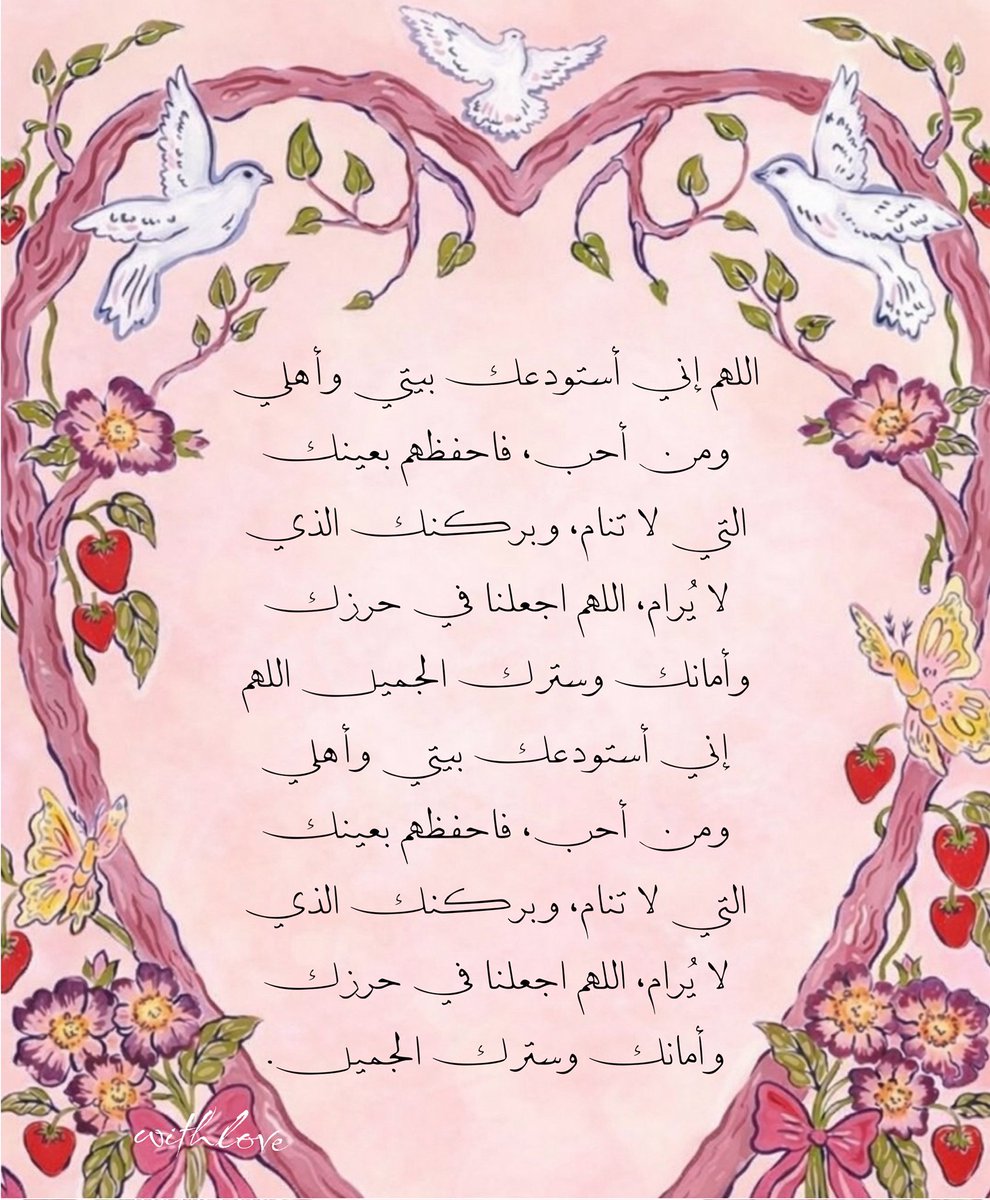 اللهم إني أستودعك بيتي وأهلي
ومن أحب، فاحفظهم بعينك
التي لا تنام، وبركنك الذي
لا يُرام، اللهم اجعلنا في حرزك
وأمانك وسترك الجميل اللهم
إني أستودعك بيتي وأهلي
ومن أحب، فاحفظهم بعينك
التي لا تنام، وبركنك الذي
لا يُرام، اللهم اجعلنا في حرزك
وأمانك وسترك الجميل.
with love